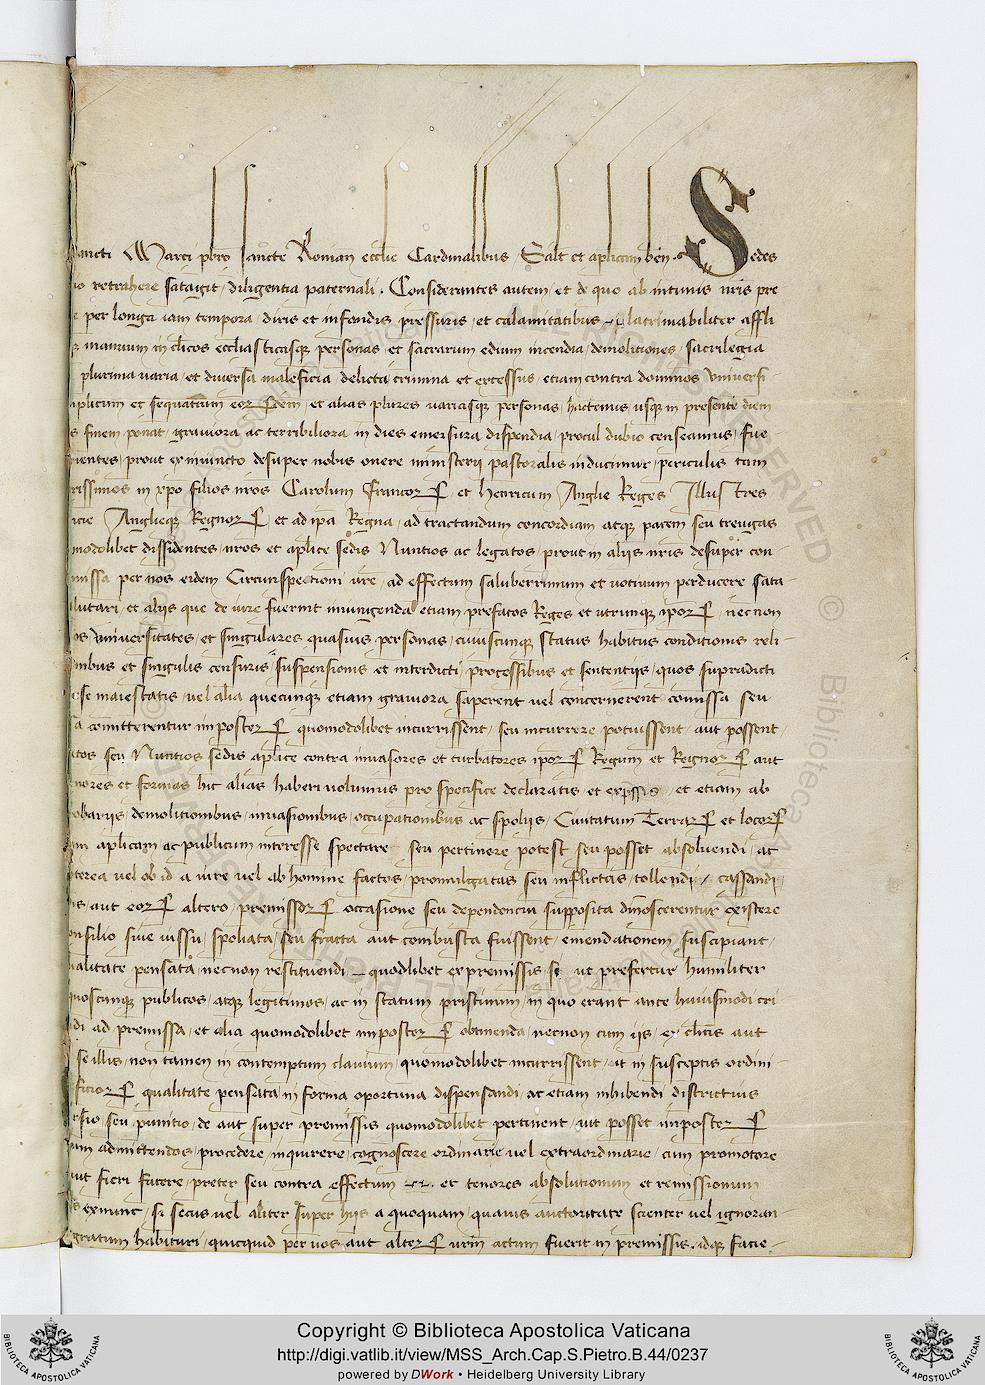 sancti Marci pbro sancte Roman ecclie Cardinalibus Salt et aplicam ben. Sedes
retrahere satagit, diligentia paternali. Considerantes autem, et de quo ab intimis nris
per longa iam tempora, diris et infandis pressuris, et calamitatibus lacrimabiliter affli
manuum in clicos ecclasticasq personas et sacrarum edium incendia, demolitiones, sacrilegia
plurima varia, et diversa maleficia delicta crimina et excessus, etiam contra dominos universi-
aplicum et sequacium eor fidem, et alias plures variasq personas, hactenus usq in presente diem
finem ponat, graviora ac terribiliora in dies emersura dispendia, procul dubio censeamus, fue
prout ex iniuncto desuper nobis onere ministerij pastoralis inducimur, periculis tam
rissimos in xpo filios nros Carolum Francor, et Henricum Anglie Reges Illustres
Anglieq Regnor, et ad ipa Regna, ad tractandum concordiam atq pacem seu treugas
modolibet dissidentes, nros et aplice sedis Nuntios ac legatos, prout in alijs nris desuper con
missa per nos eidem Circunspectioni vre, ad effectum saluberrimum et votivum perducere sata-
lutari, et alijs que de iure fuerint iniungenda etiam prefatos Reges et utrunq ipor, necnon
os universitates, et singulares quasvis personas, cuiuscunq status habitus conditionis reli-
nibus et singulis censuris suspensionis et interdicti, processibus et sententijs, quos supradicti
se maiestatis, vel alia quecunq etiam graviora saperent vel concernerent comissa seu
comitterentur imposter quomodolibet incurrissent, seu incurrere potuissent, aut possent,
atos seu Nuntios sedis aplice contra invasores et turbatores ipor Regum et Regnor aut
nores et formas hic alias haberi volumus pro specifice declaratis et expssis, et etiam ab
demolitionibus, invasionibus, occupationibus ac spolijs, Civitatum Terrar et locor
aplicam ac publicum interesse spectare seu pertinere potest seu posset absolvendi, ac
pterea vel ob id a iure vel ab homine factos, promulgatas seu inflictas, tollendi, cassandi
aut eor altero, premissor occasione seu dependencia supposita dinoscerentur existere
onsilio sive iussu, spoliata, seu fracta aut combusta fuissent, emendationem suscipiant,
alitate pensata, necnon restituendi quodlibet ex premissis si ut prefertur humiliter
uoscunq publicos, atq legitimos, ac in statum pristinum, in quo erant ante huiusmodi cri
di ad premissa, et alia quomodolibet imposter obtinenda, necnon cum ijs, ex clicis aut
se illis, non tamen in contemptum clavium, quomodolibet incurrissent, ut in susceptis ordini
ficior qualitate pensata, in forma oportuna dispensandi, ac etiam inhibendi districtius
seu punitio, de aut super premissis quomodolibet pertinent, aut posset imposter
admittendos, procedere, inquirere, cognoscere ordinarie vel extraordinarie, cum promotore
aut fieri facere, preter seu contra effectum et tenores absolutionum et remissionum
exnunc, si secus vel aliter super hijs a quoquam, quavis auctoritate scienter vel ignoran-
gratum habituri, quicquid per vos aut alter vrum actum fuerit in premissis, idq facie-
Copyright © Biblioteca Apostolica Vaticana
http://digi.vatlib.it/view/MSS_Arch.Cap.S.Pietro.B.44/0237
powered by DWork • Heidelberg University Library